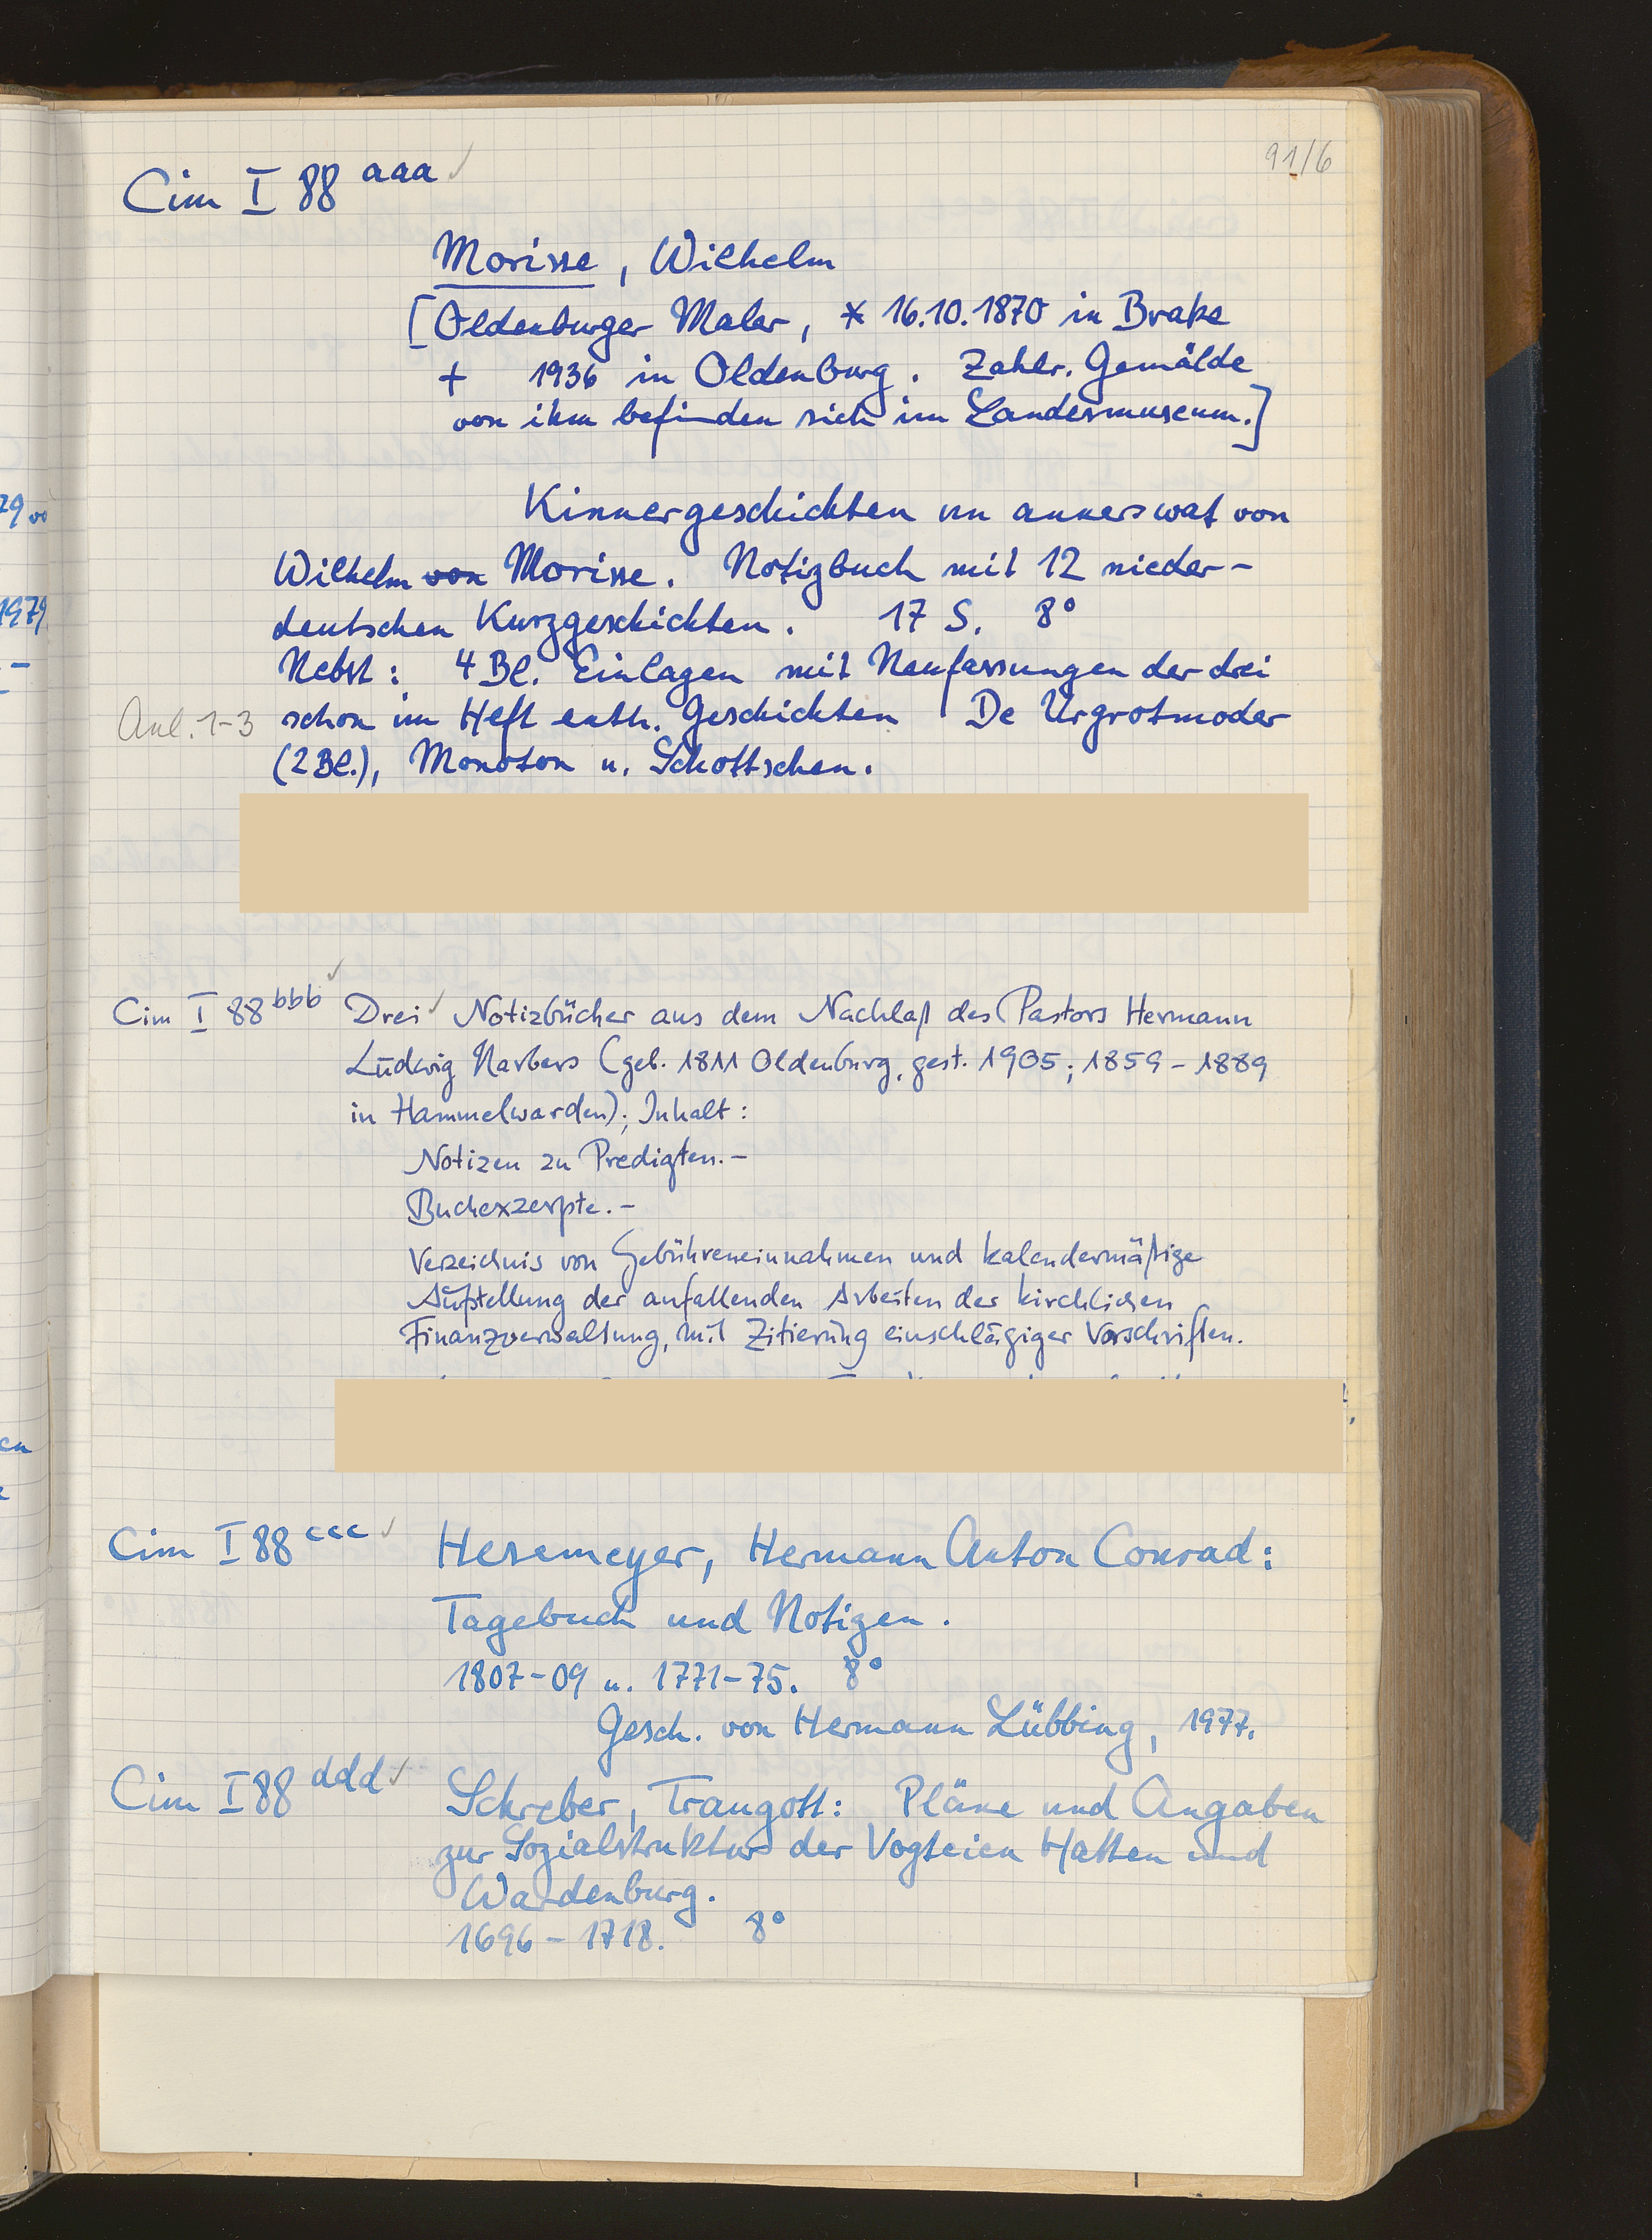 91/6
Cim I 88 aaa ✓
Morisse, Wilhelm
[Oldenburger Maler, * 16.10.1870 in Brake
+ 1936 in Oldenburg. Zahlr. Gemälde
von ihm befinden sich im Landesmuseum.]
Kinnergeschichten un annerswat von
Wilhelm von Morisse. Notizbuch mit 12 nieder-
deutschen Kurzgeschichten. 17 S. 8°
Nebst: 4 Bl. Einlagen mit Neufassungen der drei
Anl. 1-3 schon im Heft enth. Geschichten De Urgrotmoder
(2 Bl.), Monoton u. Schottschen.
Cim I 88 bbb ✓ Drei ✓ Notizbücher aus dem Nachlaß des Pastors Hermann
Ludwig Harbers (geb. 1811 Oldenburg, gest. 1905; 1859-1889
in Hammelwarden); Inhalt:
Notizen zu Predigten.-
Buchexzerpte.-
Verzeichnis von Gebühreneinnahmen und kalendermäßige
Aufstellung der anfallenden Arbeiten der kirchlichen
Finanzverwaltung, mit Zitierung einschlägiger Vorschriften.
Cim I 88 ccc ✓ Hesemeyer, Hermann Anton Conrad:
Tagebuch und Notizen.
1807-09 u. 1771-75. 8°
Gesch. von Hermann Lübbing, 1977.
Cim I 88 ddd ✓ Schreber, Traugott: Pläne und Angaben
zur Sozialstruktur der Vogteien Hatten und
Wardenburg.
1696-1718. 8°